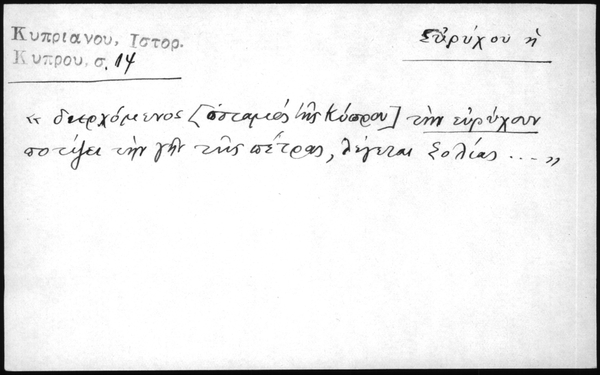 Κυπριανου, Ιστορ.
Κυπρου, σ. 14
Εὐρύχου ἡ
« διερχόμενος [ὁ ποταμός τῆς Κύπρου] τὴν εὐρύχουν
ποτίζει τὴν γῆν τῆς πέτρας, λέγεται Σολίας ... »